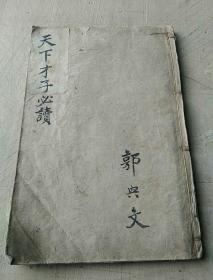 天下才子必讀
郭興文